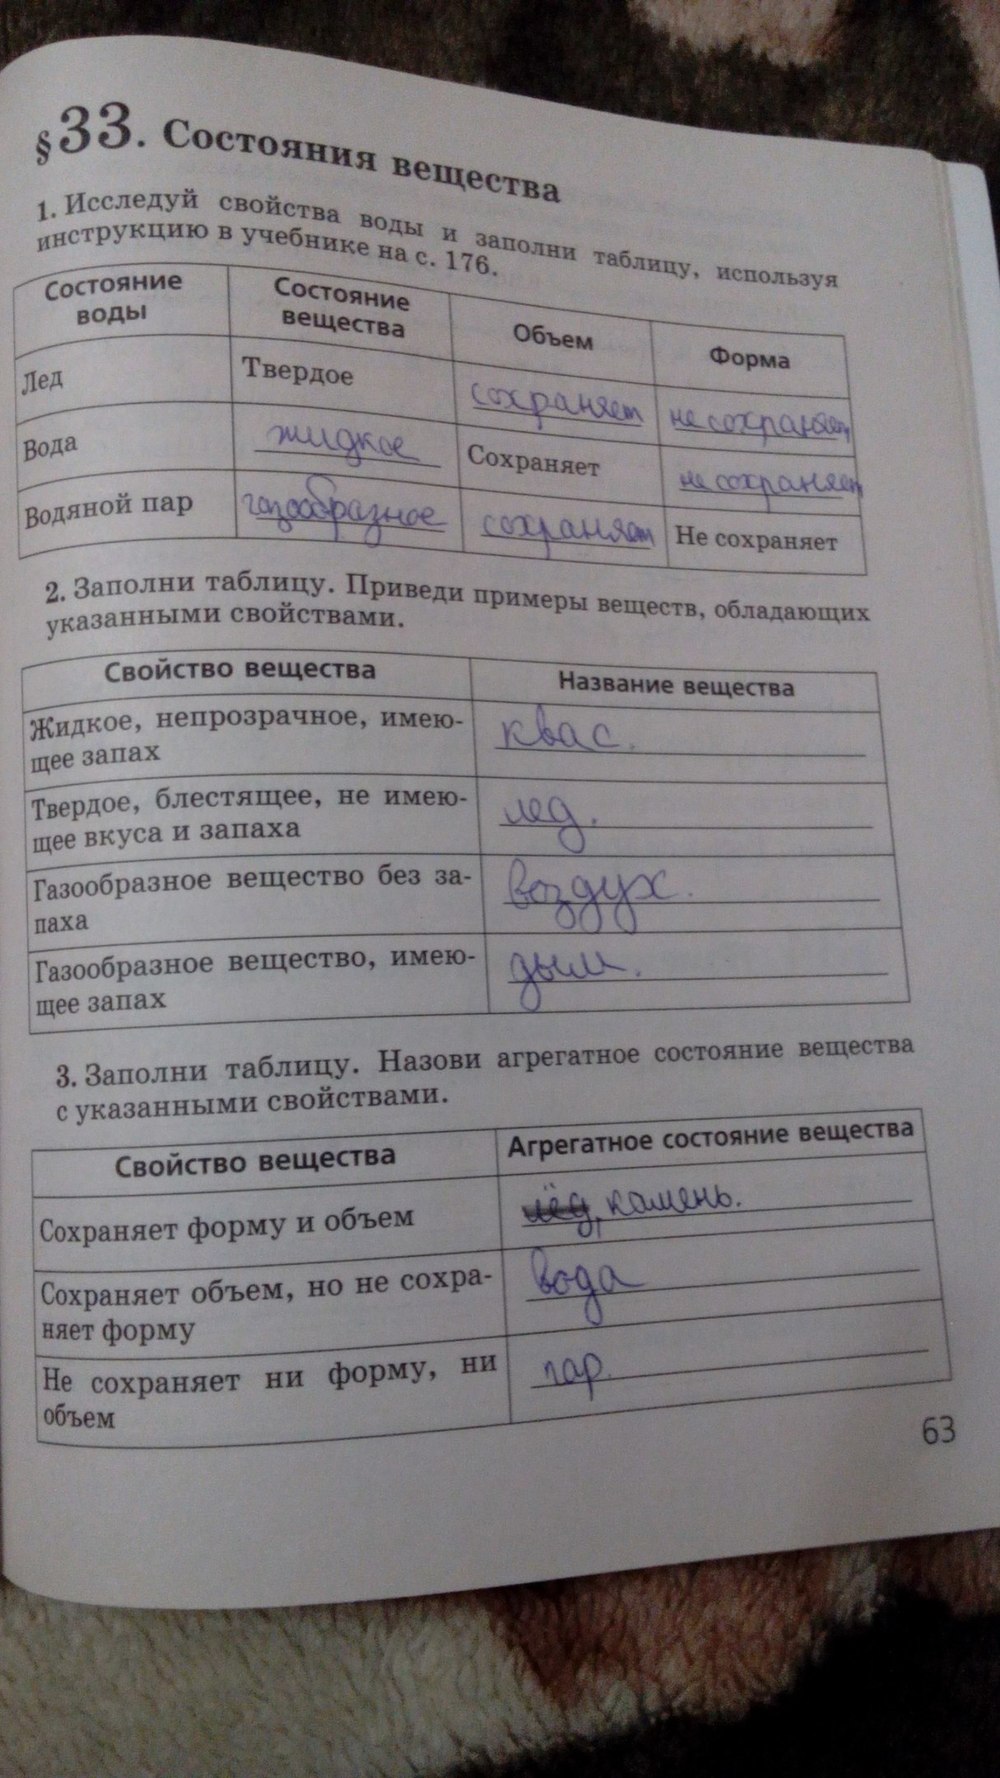 §33. Состояния вещества
1. Исследуй свойства воды и заполни таблицу, используя
инструкцию в учебнике на с. 176.
Состояние
воды
Состояние
вещества
Объем
Форма
Лед
Твердое
сохраняет
не сохраняет
Вода
жидкое
Сохраняет
не сохраняет
Водяной пар
газообразное
сохраняет
Не сохраняет
2. Заполни таблицу. Приведи примеры веществ, обладающих
указанными свойствами.
Свойство вещества
Название вещества
Жидкое, непрозрачное, имею-
щее запах
квас.
Твердое, блестящее, не имею-
щее вкуса и запаха
лед.
Газообразное вещество без за-
паха
воздух.
Газообразное вещество, имею-
щее запах
дым.
3. Заполни таблицу. Назови агрегатное состояние вещества
с указанными свойствами.
Свойство вещества
Агрегатное состояние вещества
Сохраняет форму и объем
лёд, камень.
Сохраняет объем, но не сохра-
няет форму
вода
Не сохраняет ни форму, ни
объем
пар.
63